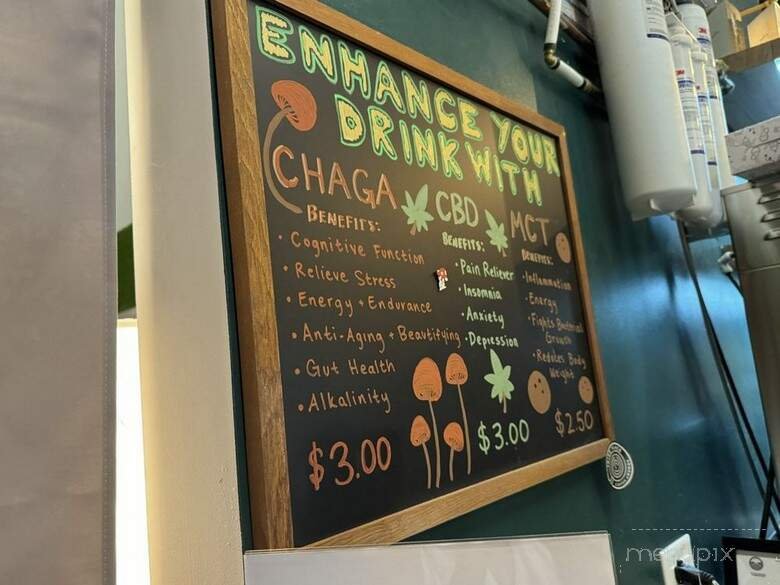 ENHANCE YOUR
DRINK WITH
CHAGA
BENEFITS:
• Cognitive Function
• Relieve Stress
• Energy + Endurance
• Anti-Aging + Beautifying
• Gut Health
• Alkalinity
$3.00
CBD
BENEFITS:
• Pain Reliever
• Insomnia
• Anxiety
• Depression
$3.00
MCT
BENEFITS:
• Inflammation
• Energy
• Fights Bacterial
Growth
• Reduces Body
Weight
$2.50
3M
3M
menupix